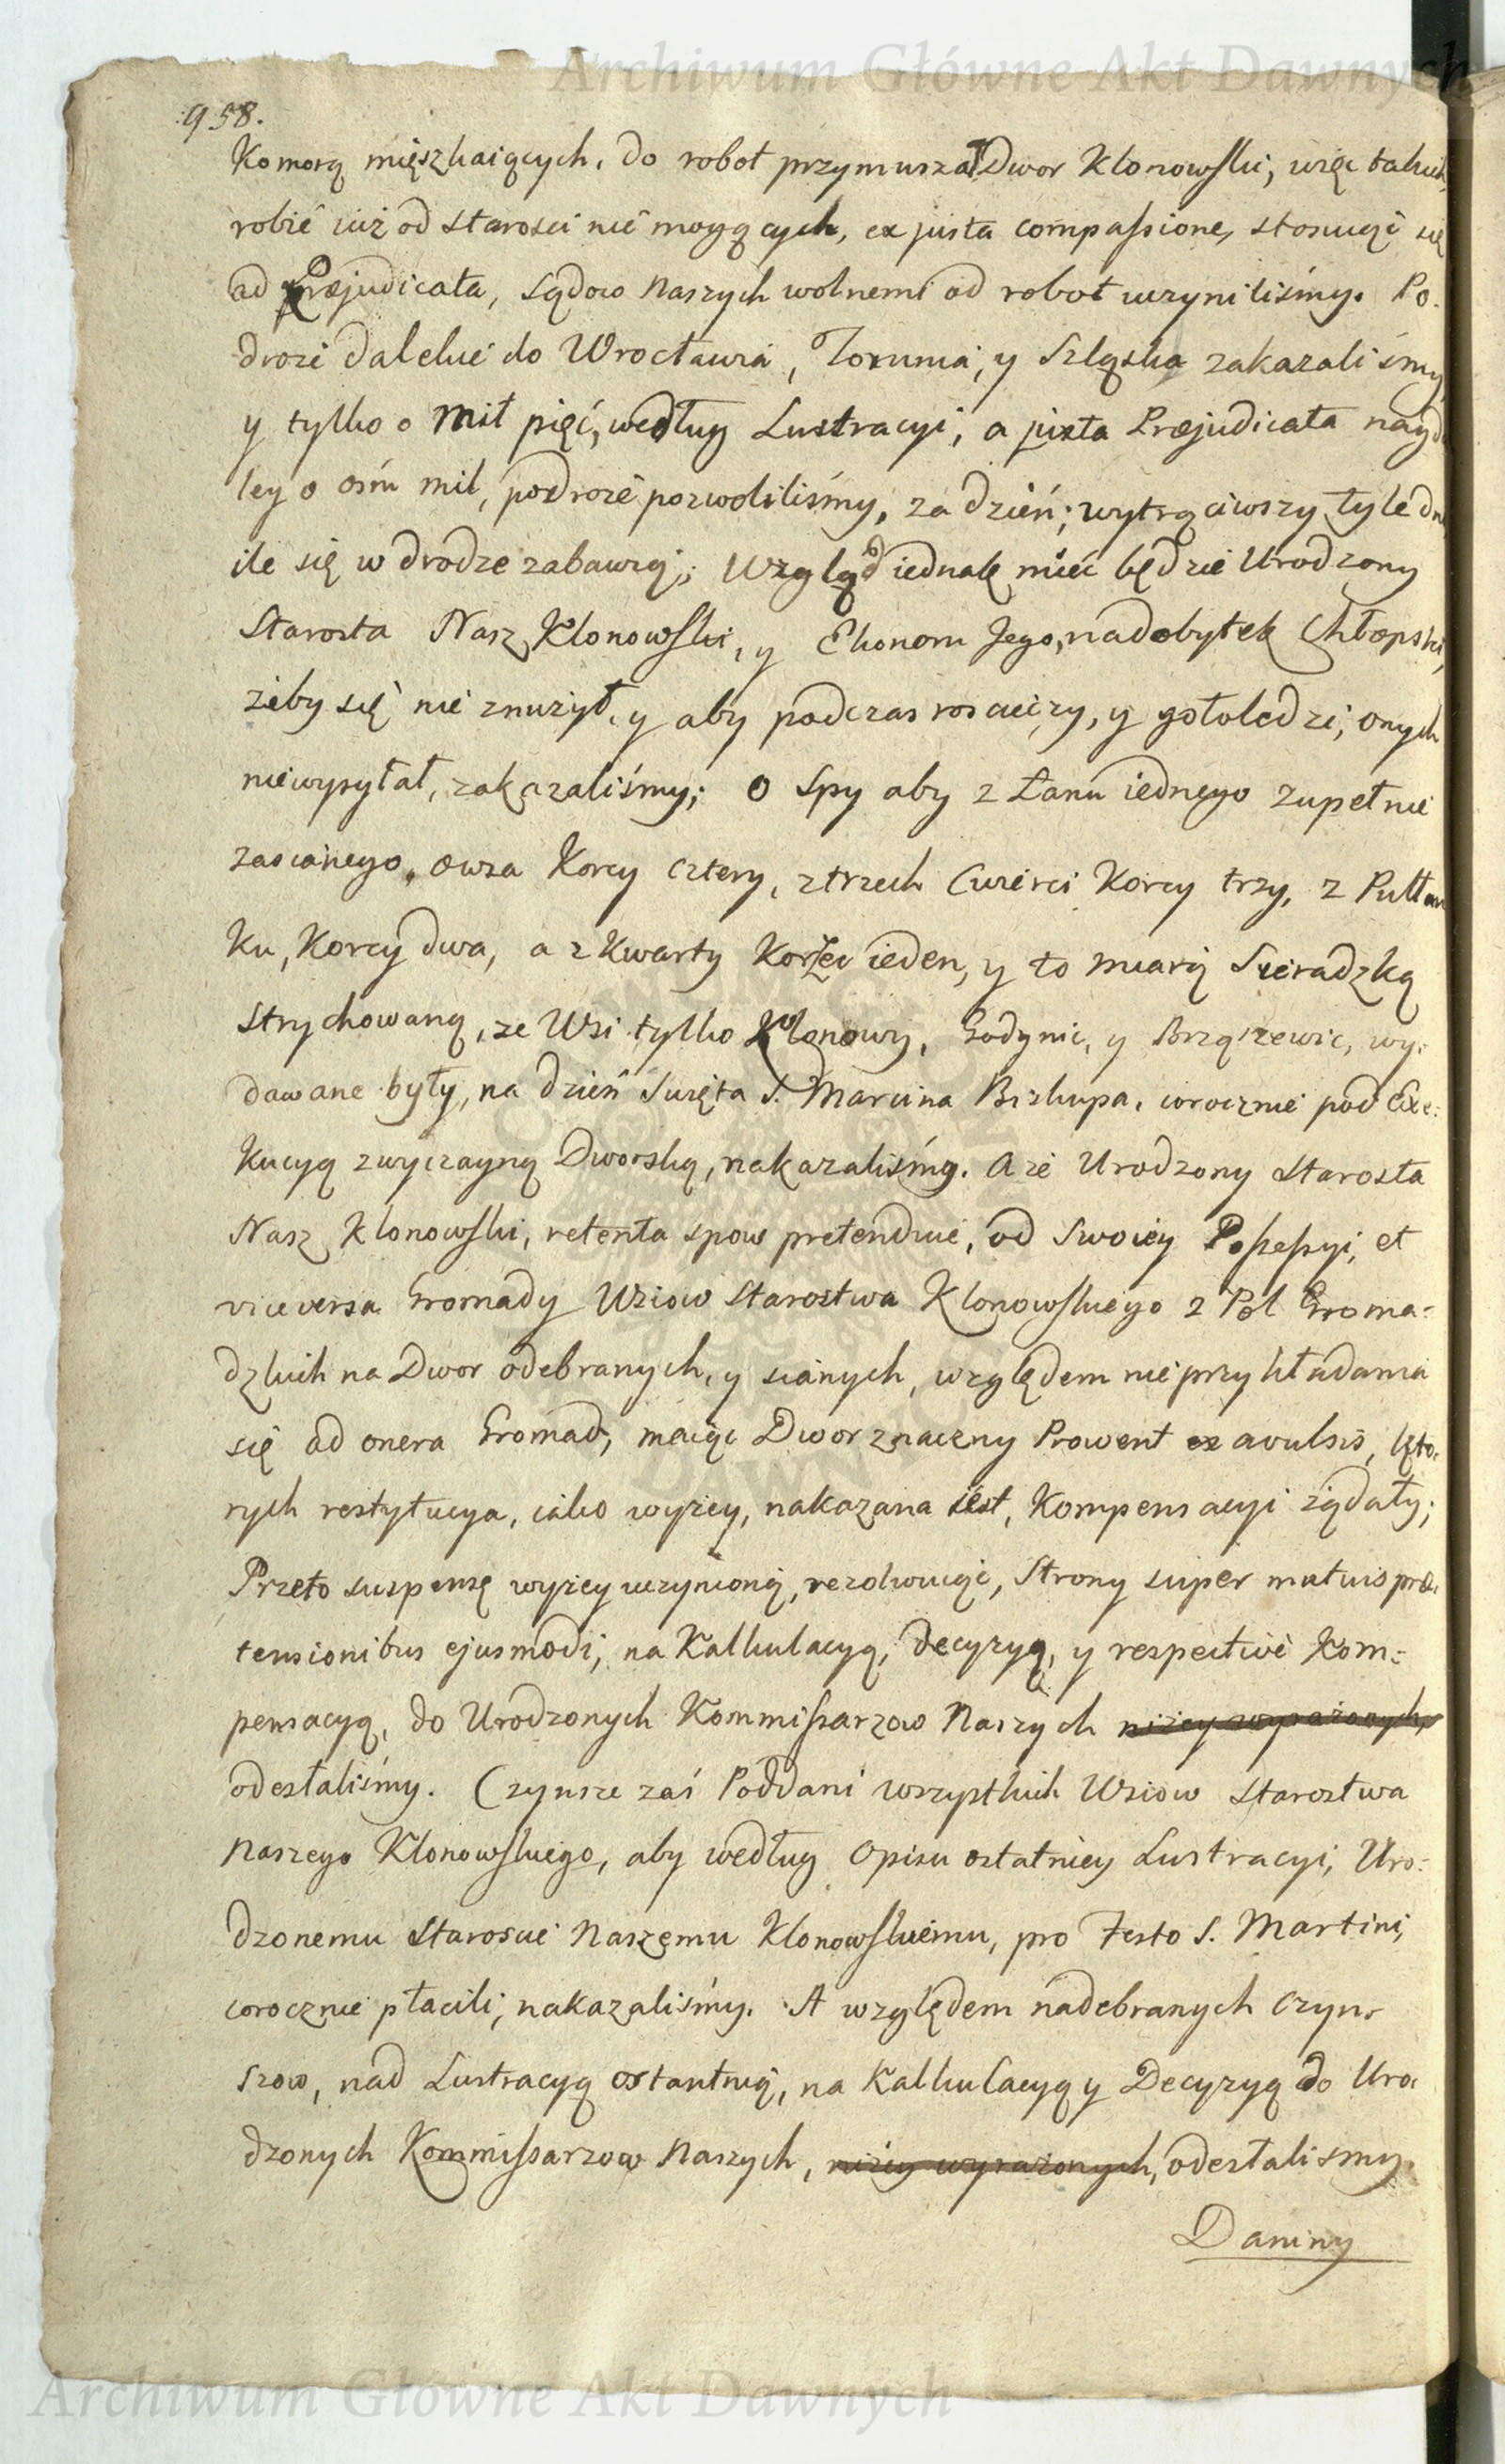 Archiwum Główne Akt Dawnych
958.
Komorą mięszkaiących, do robot przymuszał Dwor Klonowski, więc takich
robić iuż od starosci nie mogących, ex justa compassione, stosuiąc się
ad Præjudicata, Sądow Naszych wolnemi od robot uczyniliśmy. Po-
drozе dalekie do Wrocławia, Torunia, y Szląska zakazaliśmy
y tylko o mil pięć, według Lustracyi, a juxta Præjudicata nayda
ley o ośm mil, podroże pozwoliliśmy, za dzień; wytrąciwszy tyle dni
ile się w drodze zabawią; Wzgląd iednak mieć będzie Urodzony
Starosta Nasz Klonowski, y Ekonom Jego, na dobytek Chłopski,
żeby się nie znużył, y aby podczas rosciezy, y gołoledzi, onych
niewysyłał, zakazaliśmy; O Spy aby z Łanu iednego zupełnie
zasianego, owsa Korcy cztery, z trzech Cwierci Korcy trzy, z Pułłan
ku, Korcy dwa, a z Kwarty Korzec ieden, y to miarą Sieradzką
strychowaną, ze Wsi tylko Klonowy, Godynic, y Brąszewic, wy-
dawane były, na dzień Swięta S. Marcina Biskupa, corocznie pod Exe-
kucyą zwyczayną Dworską, nakazaliśmy. A że Urodzony Starosta
Nasz Klonowski, retenta spow pretenduie, od Swoiey Possessyi, et
viceversa Gromady Wsiow Starostwa Klonowskiego z Pol Groma-
dzkich na Dwor odebranych, y sianych, względem nie przykładania
się ad onera Gromad, maiąc Dwor znaczny Prowent ex avulsis, kto-
rych restytucya, iako wyżey, nakazana iest, Kompensacyi żądały;
Przeto suspensę wyżey uczynioną, rezolwuiąc, Strony super mutuis præ-
tensionibus ejusmodi, na Kalkulacyą, decyzyą, y respective kom-
pensacyą, do Urodzonych Kommissarzow Naszych niżey wyrażonych,
odesłaliśmy. Czynsze zaś Poddani wszystkich Wsiow Starostwa
Naszego Klonowskiego, aby według Opisu ostatniey Lustracyi, Uro-
dzonemu Staroscie Naszemu Klonowskiemu, pro Festo S. Martini,
corocznie płacili, nakazaliśmy. A względem nadebranych czyn-
szow, nad Lustracyą ostantnią, na Kalkulacyą y Decyzyą do Uro-
dzonych Kommissarzow Naszych, niżey wyrażonych, odesłalismy.
Daniny
Archiwum Główne Akt Dawnych